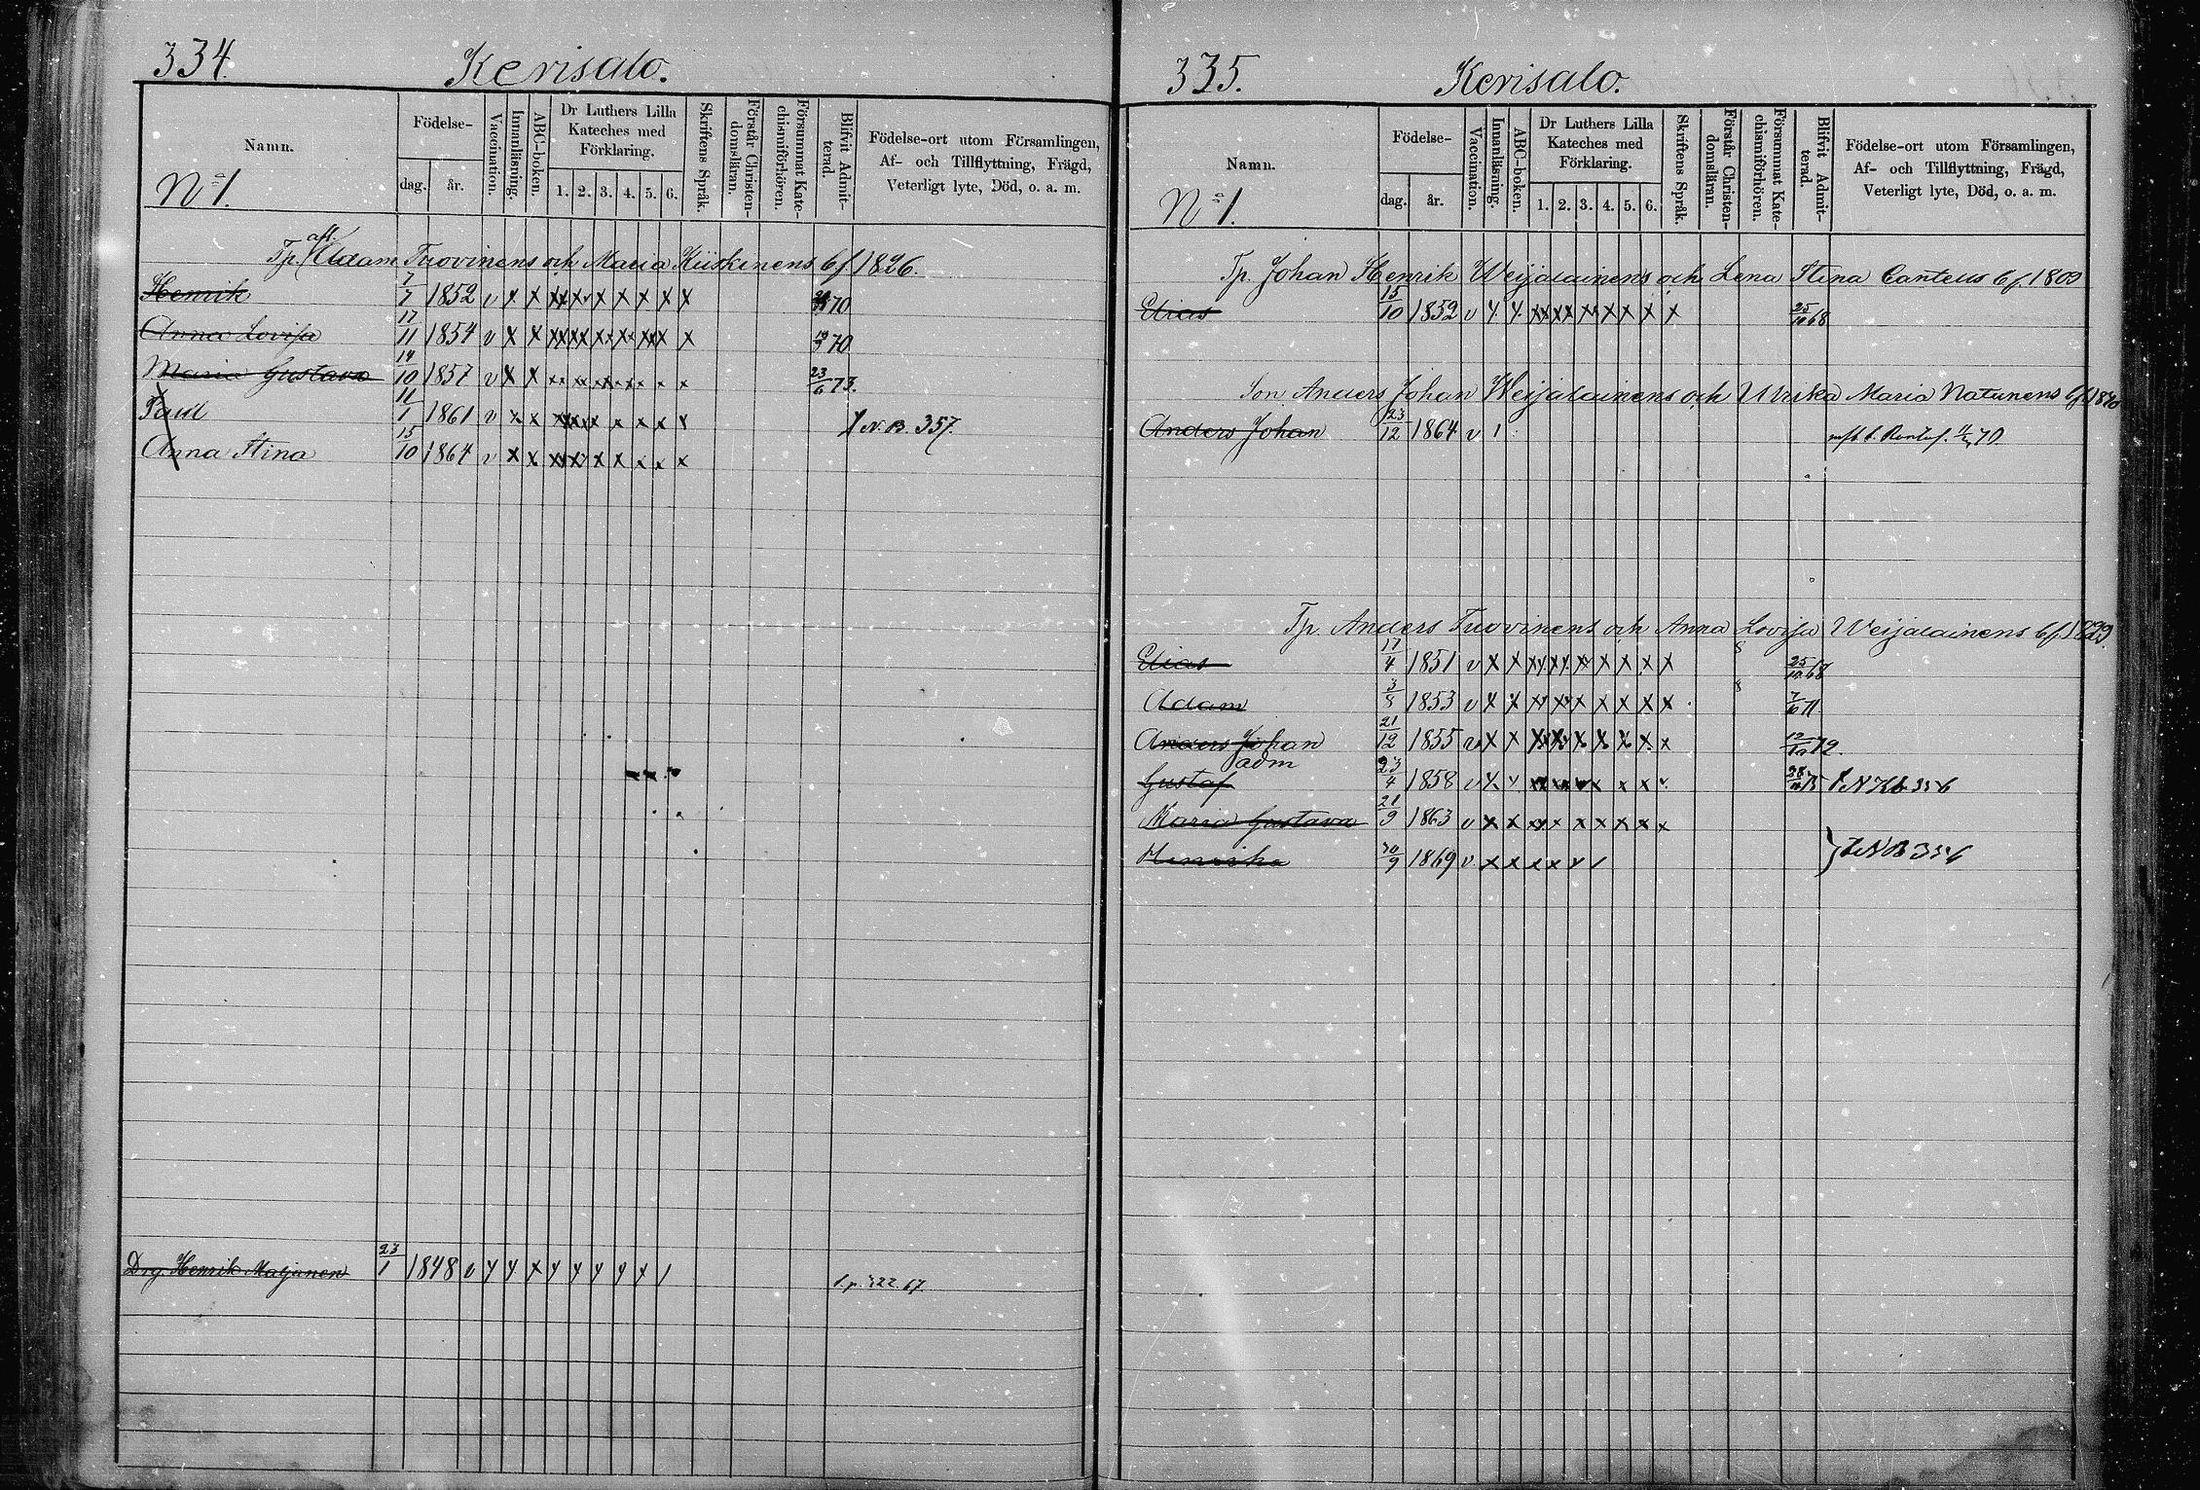 334.
Kerisalo.
Namn.
Födelse-
dag.
år.
Vaccination.
Innanläsning.
ABC-boken.
Dr Luthers Lilla
Kateches med
Förklaring.
1. 2. 3. 4. 5. 6.
Skriftens Språk.
Förstår Christen-
domsläran.
Försummat Kate-
chismiförhören.
Blifvit Admit-
terad.
Födelse-ort utom Församlingen,
Af- och Tillflyttning, Frägd,
Veterligt lyte, Död, o. a. m.
No 1.
Tp. afl. Adam Tuovinens och Maria Kiiskinens bf 1826.
Henrik 7/7 1852 v x x x x x x x x x 70
Anna Lovisa 17/11 1854 v x x x x x x x x x 70
Maria Gustava 14/10 1857 v x x x x x x x x x 23/6 73.
Paul 11/1 1861 v x x x x x x x x x N. B. 357.
Anna Stina 15/10 1864 v x x x x x x x x x
Drg. Henrik Maljanen 23/1 1848 v
335.
Kerisalo.
Namn.
Födelse-
dag.
år.
Vaccination.
Innanläsning.
ABC-boken.
Dr Luthers Lilla
Kateches med
Förklaring.
1. 2. 3. 4. 5. 6.
Skriftens Språk.
Förstår Christen-
domsläran.
Försummat Kate-
chismiförhören.
Blifvit Admit-
terad.
Födelse-ort utom Församlingen,
Af- och Tillflyttning, Frägd,
Veterligt lyte, Död, o. a. m.
No 1.
Tp. Johan Henrik Weijalainens och Lena Stina Cantells bf. 1809
Elias 15/10 1852 v x x x x x x x x x 25/10 68
Son Anders Johan Weijalainens och Ulrika Maria Natunens bf 1840
Anders Johan 23/12 1864 v 1 70
Tp. Anders Tuovinens och Anna Lovisa Weijalainens bf. 1829.
Elias 17/4 1851 v x x x x x x x x x 25/10 68
Adam 3/8 1853 v x x x x x x x x x 7/10 71
Anders Johan 21/12 1855 v x x x x x x x x x 72.
adm
Gustaf 23/4 1858 v x x x x x x x x x 75 356
Maria Gustava 21/9 1863 v x x x x x x x x x
Henrika 30/9 1869 v x x x x x / N B 356